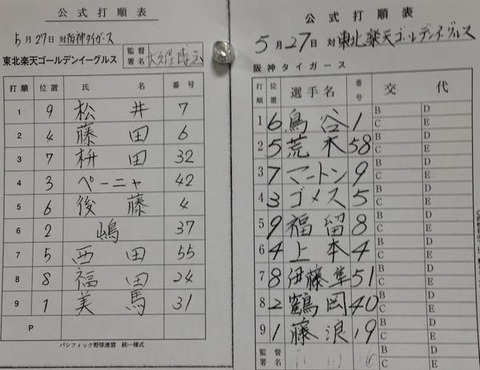 公式打順表
5月27日 対阪神タイガース
東北楽天ゴールデンイーグルス
監督署名
打順 位置 氏名 番号
1 9 松井 7
2 4 藤田 6
3 7 枡田 32
4 3 ペーニャ 42
5 6 後藤 4
6 2 嶋 37
7 5 西田 55
8 8 福田 24
9 1 美馬 31
P
パシフィック野球連盟 統一様式
公式打順表
5月27日 対東北楽天ゴールデンイーグルス
阪神タイガース
打順 位置 選手名 番号 交代
1 6 鳥谷 1 B C D E
2 5 荒木 58 B C D E
3 7 マートン 9 B C D E
4 3 ゴメス 5 B C D E
5 9 福留 8 B C D E
6 4 上本 4 B C D E
7 8 伊藤隼 51 B C D E
8 2 鶴岡 40 B C D E
9 1 藤浪 19 B C D E
監督署名